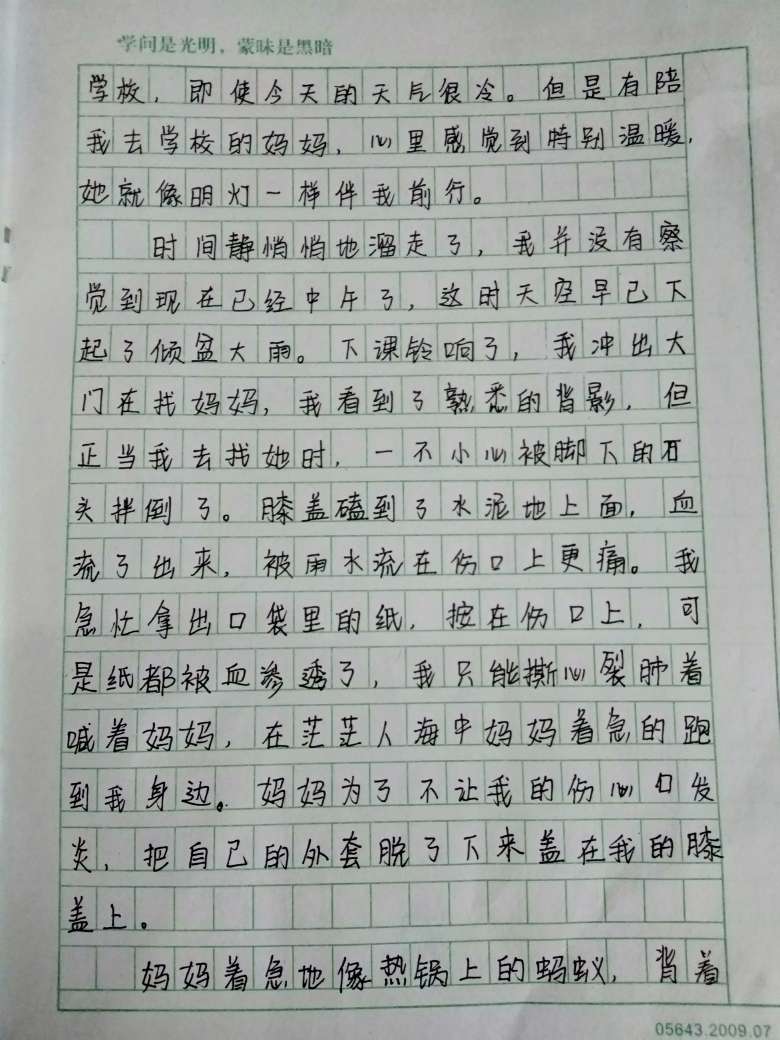 学问是光明，蒙昧是黑暗
学校，即使今天的天气很冷。但是有陪
我去学校的妈妈，心里感觉到特别温暖，
她就像明灯一样伴我前行。
时间静悄悄地溜走了，我并没有察
觉到现在已经中午了，这时天空早已下
起了倾盆大雨。下课铃响了，我冲出大
门在找妈妈，我看到了熟悉的背影，但
正当我去找她时，一不小心被脚下的石
头拌倒了。膝盖磕到了水泥地上面，血
流了出来，被雨水流在伤口上更痛。我
急忙拿出口袋里的纸，按在伤口上，可
是纸都被血渗透了，我只能撕心裂肺着
喊着妈妈，在茫茫人海中妈妈着急的跑
到我身边。妈妈为了不让我的伤心口发
炎，把自己的外套脱了下来盖在我的膝
盖上。
妈妈着急地像热锅上的蚂蚁，背着
05643.2009.07